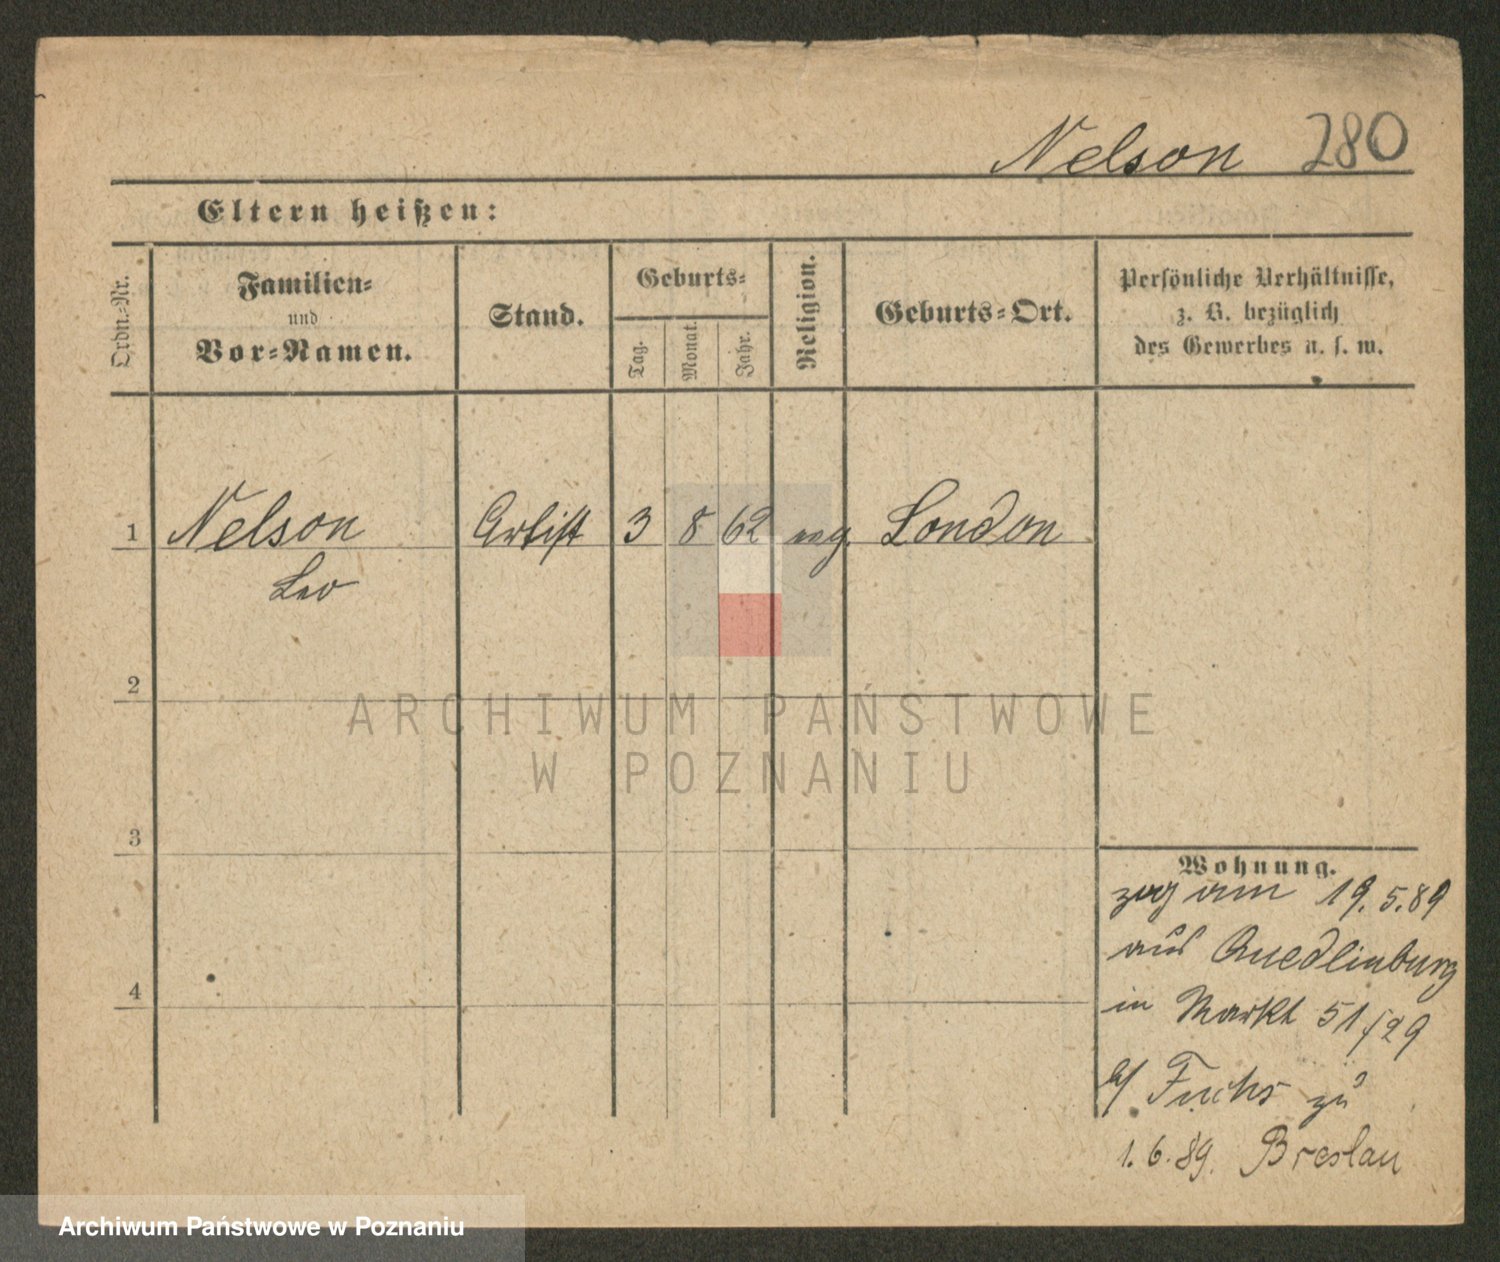 Nelson 280
Eltern heißen:
Ordn.-Nr.
Familien-
und
Vor-Namen.
Stand.
Geburts-
Tag.
Monat.
Jahr.
Religion.
Geburts-Ort.
Persönliche Verhältnisse,
z. B. bezüglich
des Gewerbes u. s. w.
1 Nelson Artist 3 8 62 London
Leo
2
3
4
Wohnung.
zog am 19.5.89
aus Quedlinburg
in Markt 51/29
b/ Fuchs zu
1.6.89. Breslau
ARCHIWUM PAŃSTWOWE
W POZNANIU
Archiwum Państwowe w Poznaniu